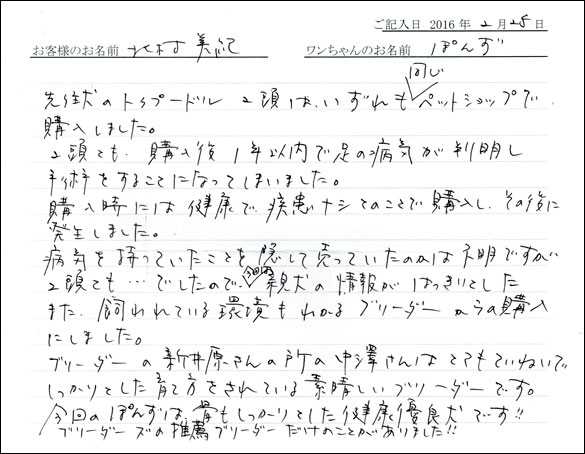 ご記入日 2016年 2月 25日
お客様のお名前 北村 美紀 ワンちゃんのお名前 ぽんず
先住犬のトイプードル 2頭は、いずれも同じペットショップで
購入しました。
2頭とも、購入後 1年以内で足の病気が判明し
手術をすることになってしまいました。
購入時には健康で疾患ナシとのことで購入し、その後に
発生しました。
病気を持っていたことを隠して売っていたのかは不明ですが
2頭とも…でしたので、今回は親犬の情報がはっきりとした
また、飼われている環境もわかるブリーダーからの購入
にしました。
ブリーダーの新井原さんの所の中澤さんはとてもていねいで
しっかりとした育て方をされている素晴しいブリーダーです。
今回のぽんずは、骨もしっかりとした健康優良犬です!!
ブリーダーズの推薦ブリーダーだけのことがありました!!